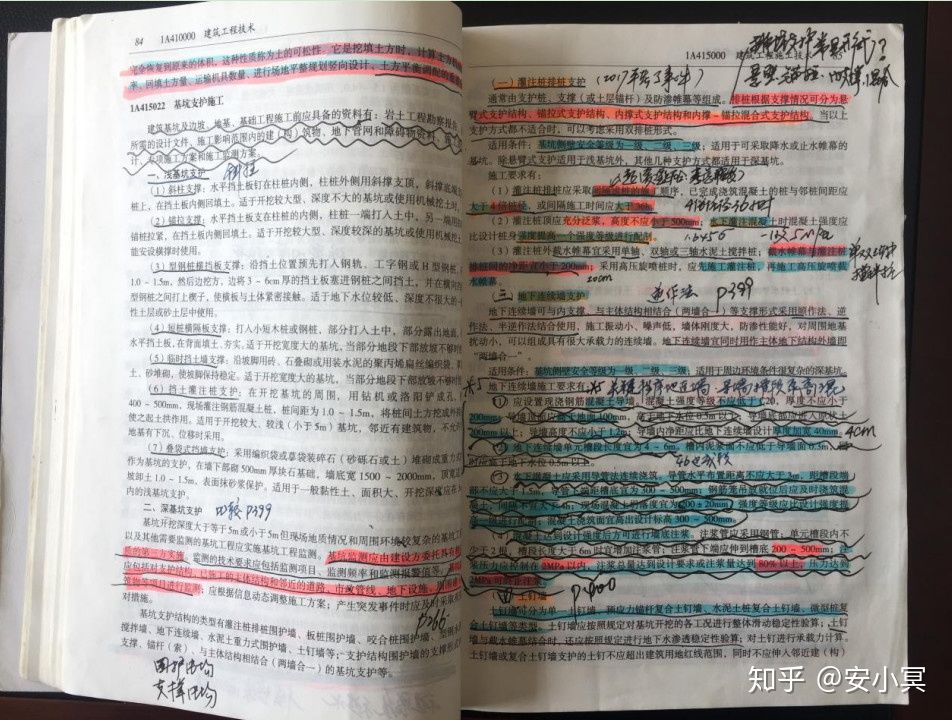 84 1A410000 建筑工程技术
完全恢复到原来的体积,这种性质称为土的可松性。它是挖填土方时,计算土方机
率、回填土方量、运输机具数量、进行场地平整规划竖向设计、土方平衡调配的重要
1A415022 基坑支护施工
建筑基坑及边坡、地基、基础工程施工前应具备的资料有:岩土工程勘察报告
所需的设计文件、施工影响范围内的建(构)筑物、地下管网和障碍物资料
专项施工方案和施工监测方案
一、浅基坑支护
(1)斜柱支撑:水平挡土板钉在柱桩内侧,柱桩外侧用斜撑支顶,斜撑底端
桩上,在挡土板内侧回填土。适于开挖较大型、深度不大的基坑或使用机械挖土时。
(2)锚拉支撑:水平挡土板支在柱桩的内侧,柱桩一端打入土中,另一端用
锚桩拉紧,在挡土板内侧回填土。适于开挖较大型、深度较深的基坑或使用机械挖土
能安设横撑时使用。
(3)型钢桩横挡板支撑:沿挡土位置预先打入钢轨、工字钢或H型钢桩,
1.0~1.5m,然后边挖方,边将3~6cm厚的挡土板塞进钢桩之间挡土,并在横向
型钢桩之间打上楔子,使横板与土体紧密接触。适于地下水位较低、深度不很大的一
性土层或砂土层中使用。
(4)短桩横隔板支撑:打入小短木桩或钢桩,部分打入土中,部分露出地面,
水平挡土板,在背面填土、夯实。适于开挖宽度大的基坑,当部分地段下部放坡不够时使
(5)临时挡土墙支撑:沿坡脚用砖、石叠砌或用装水泥的聚丙烯扁丝编织袋、
土、砂堆砌,使坡脚保持稳定。适于开挖宽度大的基坑,当部分地段下部放坡不够时
(6)挡土灌注桩支护:在开挖基坑的周围,用钻机或洛阳铲成孔,
400~500mm,现场灌注钢筋混凝土桩,桩间距为1.0~1.5m,将桩间土方挖成外拱
使之起土拱作用。适用于开挖较大、较浅(小于5m)基坑,邻近有建筑物,不允许
地基有下沉、位移时采用。
(7)叠袋式挡墙支护:采用编织袋或草袋装碎石(砂砾石或土)堆砌成重力式
作为基坑的支护,在墙下部砌500mm厚块石基础,墙底宽1500~2000mm,顶宽
坡卸土1.0~1.5m,表面抹砂浆保护。适用于一般黏性土、面积大、开挖深度应在
内的浅基坑支护。
二、深基坑支护 P399
基坑开挖深度大于等于5m或小于5m但现场地质情况和周围环境较复杂的基坑工程
以及其他需要监测的基坑工程应实施基坑工程监测。基坑监测应由建设方委托具有相
质的第三方实施。监测的技术要求应包括监测项目、监测频率和监测报警值等。
应包括对支护结构、已施工的主体结构和邻近的道路、市政管线、地下设施、周围建
筑物等项目进行监测;应根据信息动态调整施工方案;产生突发事件时应及时采取
对措施。
P266
基坑支护结构的类型有灌注桩排桩围护墙、板桩围护墙、咬合桩围护墙、
搅拌墙、地下连续墙、水泥土重力式围护墙、土钉墙等;支护结构围护墙的支撑形式
支撑、锚杆(索)、与主体结构相结合(两墙合一)的基坑支护等。
围护结构
支撑结构
1A415000 建筑工程施工技术
(一)灌注桩排桩支护
通常由支护桩、支撑(或土层锚杆)及防渗帷幕等组成。排桩根据支撑情况可分为悬
臂式支护结构、锚拉式支护结构、内撑式支护结构和内撑-锚拉混合式支护结构。当以上
支护方式都不适合时,可以考虑采用双排桩形式。
适用条件:基坑侧壁安全等级为一级、二级、三级;适用于可采取降水或止水帷幕的
基坑。除悬臂式支护适用于浅基坑外,其他几种支护方式都适用于深基坑。
施工要求有:
(1)灌注桩排桩应采取间隔成桩的施工顺序,已完成浇筑混凝土的桩与邻桩间距应
大于4倍桩径,或间隔施工时间应大于36h。
(2)灌注桩顶应充分泛浆,高度不应小于500mm;水下灌注混凝土时混凝土强度应
比设计桩身强度提高一个强度等级进行配制。
(3)灌注桩外截水帷幕宜采用单轴、双轴或三轴水泥土搅拌桩;截水帷幕与灌注桩
排桩间的净距宜小于200mm;采用高压旋喷桩时,应先施工灌注桩,再施工高压旋喷截
水帷幕。
20cm
(三)地下连续墙支护 逆作法 P399
地下连续墙可与内支撑、与主体结构相结合(两墙合一)等支撑形式采用顺作法、逆
作法、半逆作法结合使用,施工振动小、噪声低,墙体刚度大,防渗性能好,对周围地基
扰动小,可以组成具有很大承载力的连续墙。地下连续墙宜同时用作主体地下结构外墙即
“两墙合一”。
适用条件:基坑侧壁安全等级为一级、二级、三级;适用于周边环境条件很复杂的深基坑。
地下连续墙施工要求有:
(1)应设置现浇钢筋混凝土导墙。混凝土强度等级不应低于C20,厚度不应小于
200mm;导墙顶面应高于地面100mm,高于地下水位0.5m以上;导墙底部应进入原状土
200mm以上;导墙高度不应小于1.2m;导墙内净距应比地下连续墙设计厚度加宽40mm。
4cm
(2)地下连续墙单元槽段长度宜为4~6m。槽内泥浆面不应低于导墙面0.3m,
同时应高于地下水位0.5m以上。
(3)水下混凝土应采用导管法连续浇筑。导管水平布置距离不应大于3m,距槽段端
部不应大于1.5m,导管下端距槽底宜为300~500mm;钢筋笼吊放就位后应及时浇筑混
凝土,间隔不宜大于4h;现场混凝土坍落度宜为(200±20)mm,强度等级应比设计强度提
高一级进行配制;混凝土浇筑面宜高出设计标高300~500mm。
(4)混凝土达到设计强度后方可进行墙底注浆。注浆管应采用钢管;单元槽段内不
少于2根,槽段长度大于6m时宜增加注浆管;注浆管下端应伸到槽底200~500mm;注
浆压力应控制在2MPa以内,注浆总量达到设计要求或注浆量达到80%以上,压力达到
2MPa可终止注浆。
(四)土钉墙 P400
土钉墙可分为单一土钉墙、预应力锚杆复合土钉墙、水泥土桩复合土钉墙、微型桩复
合土钉墙等类型。土钉墙应按照规定对基坑开挖的各工况进行整体滑动稳定性验算;土钉
墙与截水帷幕结合时,还应按照规定进行地下水渗透稳定性验算;对土钉进行承载力计算。
土钉墙或复合土钉墙支护的土钉不应超出建筑用地红线范围,同时不应伸入邻近建(构)
知乎 @安小冥